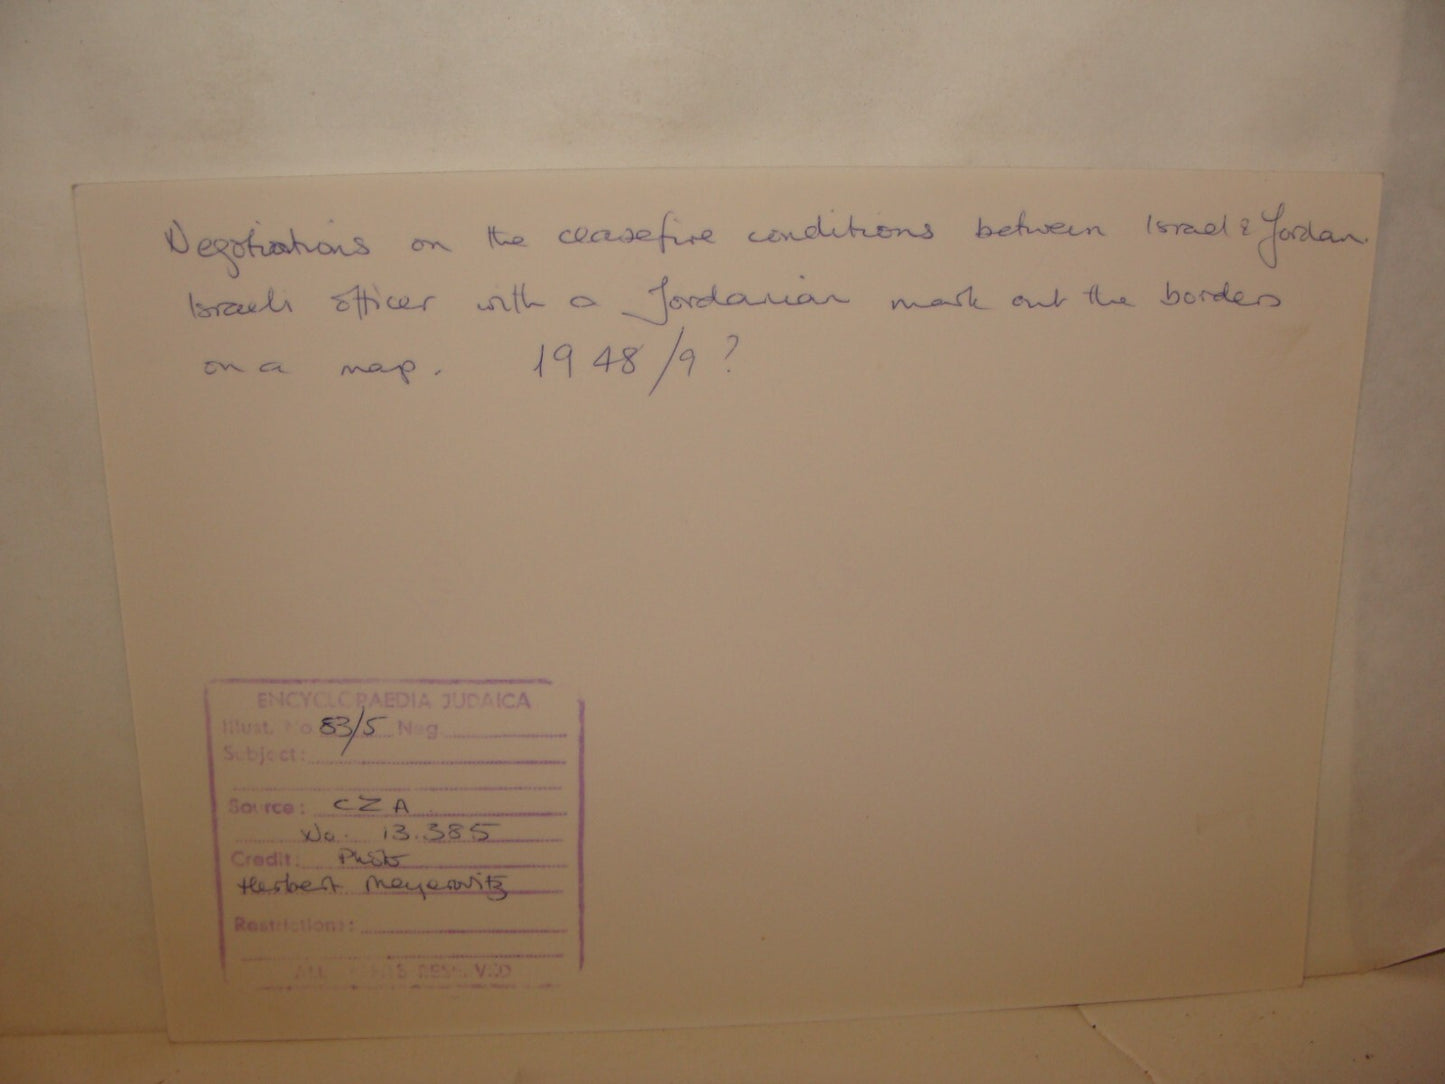 Negotiations on the ceasefire conditions between Israel & Jordan.
Israeli officer with a Jordanian mark out the borders
on a map. 1948/9?
ENCYCLOPAEDIA JUDAICA
Illust. No. 83/5 Neg.
Subject:
Source: CZA
No. 13.385
Credit: Photo
Herbert Meyerowitz
Restrictions:
ALL RIGHTS RESERVED